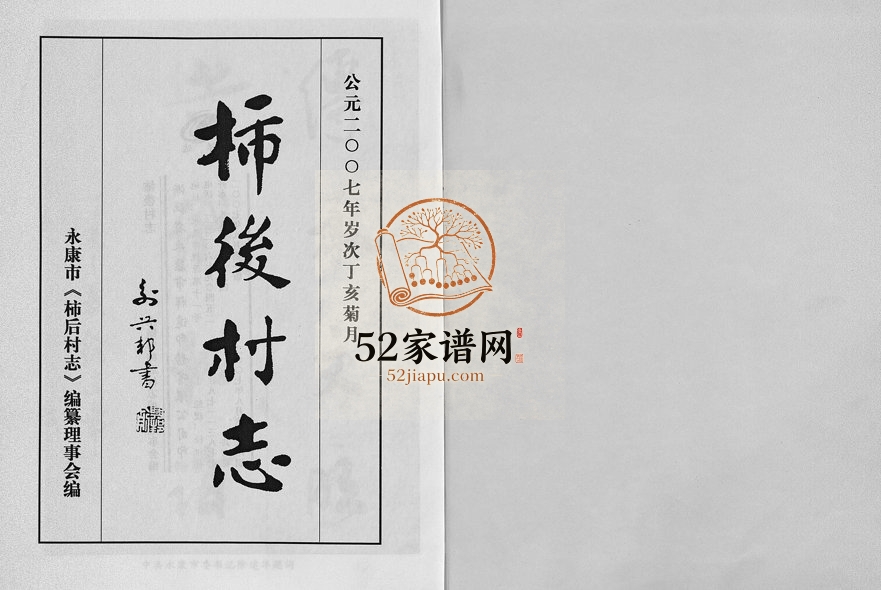 公元二〇〇七年岁次丁亥菊月
柿後村志
兴邦书
永康市《柿后村志》编纂理事会编
52家谱网
52jiapu.com